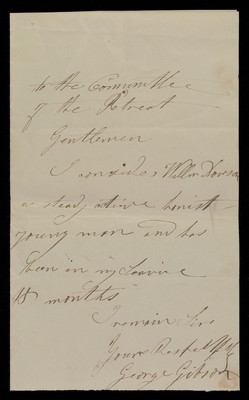 to the Committee
of the Retreat
Gentlemen
I consider Willm Dowson
a steady active honist
young man and has
been in my Service
18 months
I remain Sirs
Yours Respectfly
George Gibson